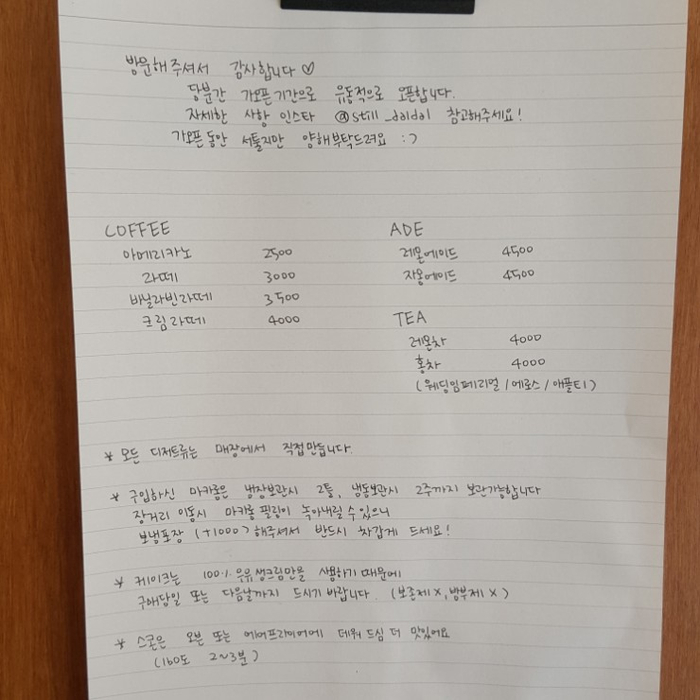 방문해주셔서 감사합니다 ♡
당분간 가오픈기간으로 유동적으로 오픈합니다.
자세한 사항 인스타 @still_daldal 참고해주세요!
가오픈동안 서툴지만 양해부탁드려요 :)
COFFEE
아메리카노 2500
라떼 3000
바닐라빈라떼 3500
크림라떼 4000
ADE
레몬에이드 4500
자몽에이드 4500
TEA
레몬차 4000
홍차 4000
(웨딩임페리얼/에로스/애플티)
* 모든 디저트류는 매장에서 직접만듭니다.
* 구입하신 마카롱은 냉장보관시 2틀, 냉동보관시 2주까지 보관가능합니다
장거리 이동시 마카롱 필링이 녹아내릴 수있으니
보냉포장 (+1000) 해주셔서 반드시 차갑게 드세요!
* 케이크는 100% 우유생크림만을 사용하기 때문에
구매당일 또는 다음날까지 드시기 바랍니다. (보존제 X, 방부제 X)
* 스콘은 오븐 또는 에어프라이어에 데워 드심 더 맛있어요
(160도 2~3분)